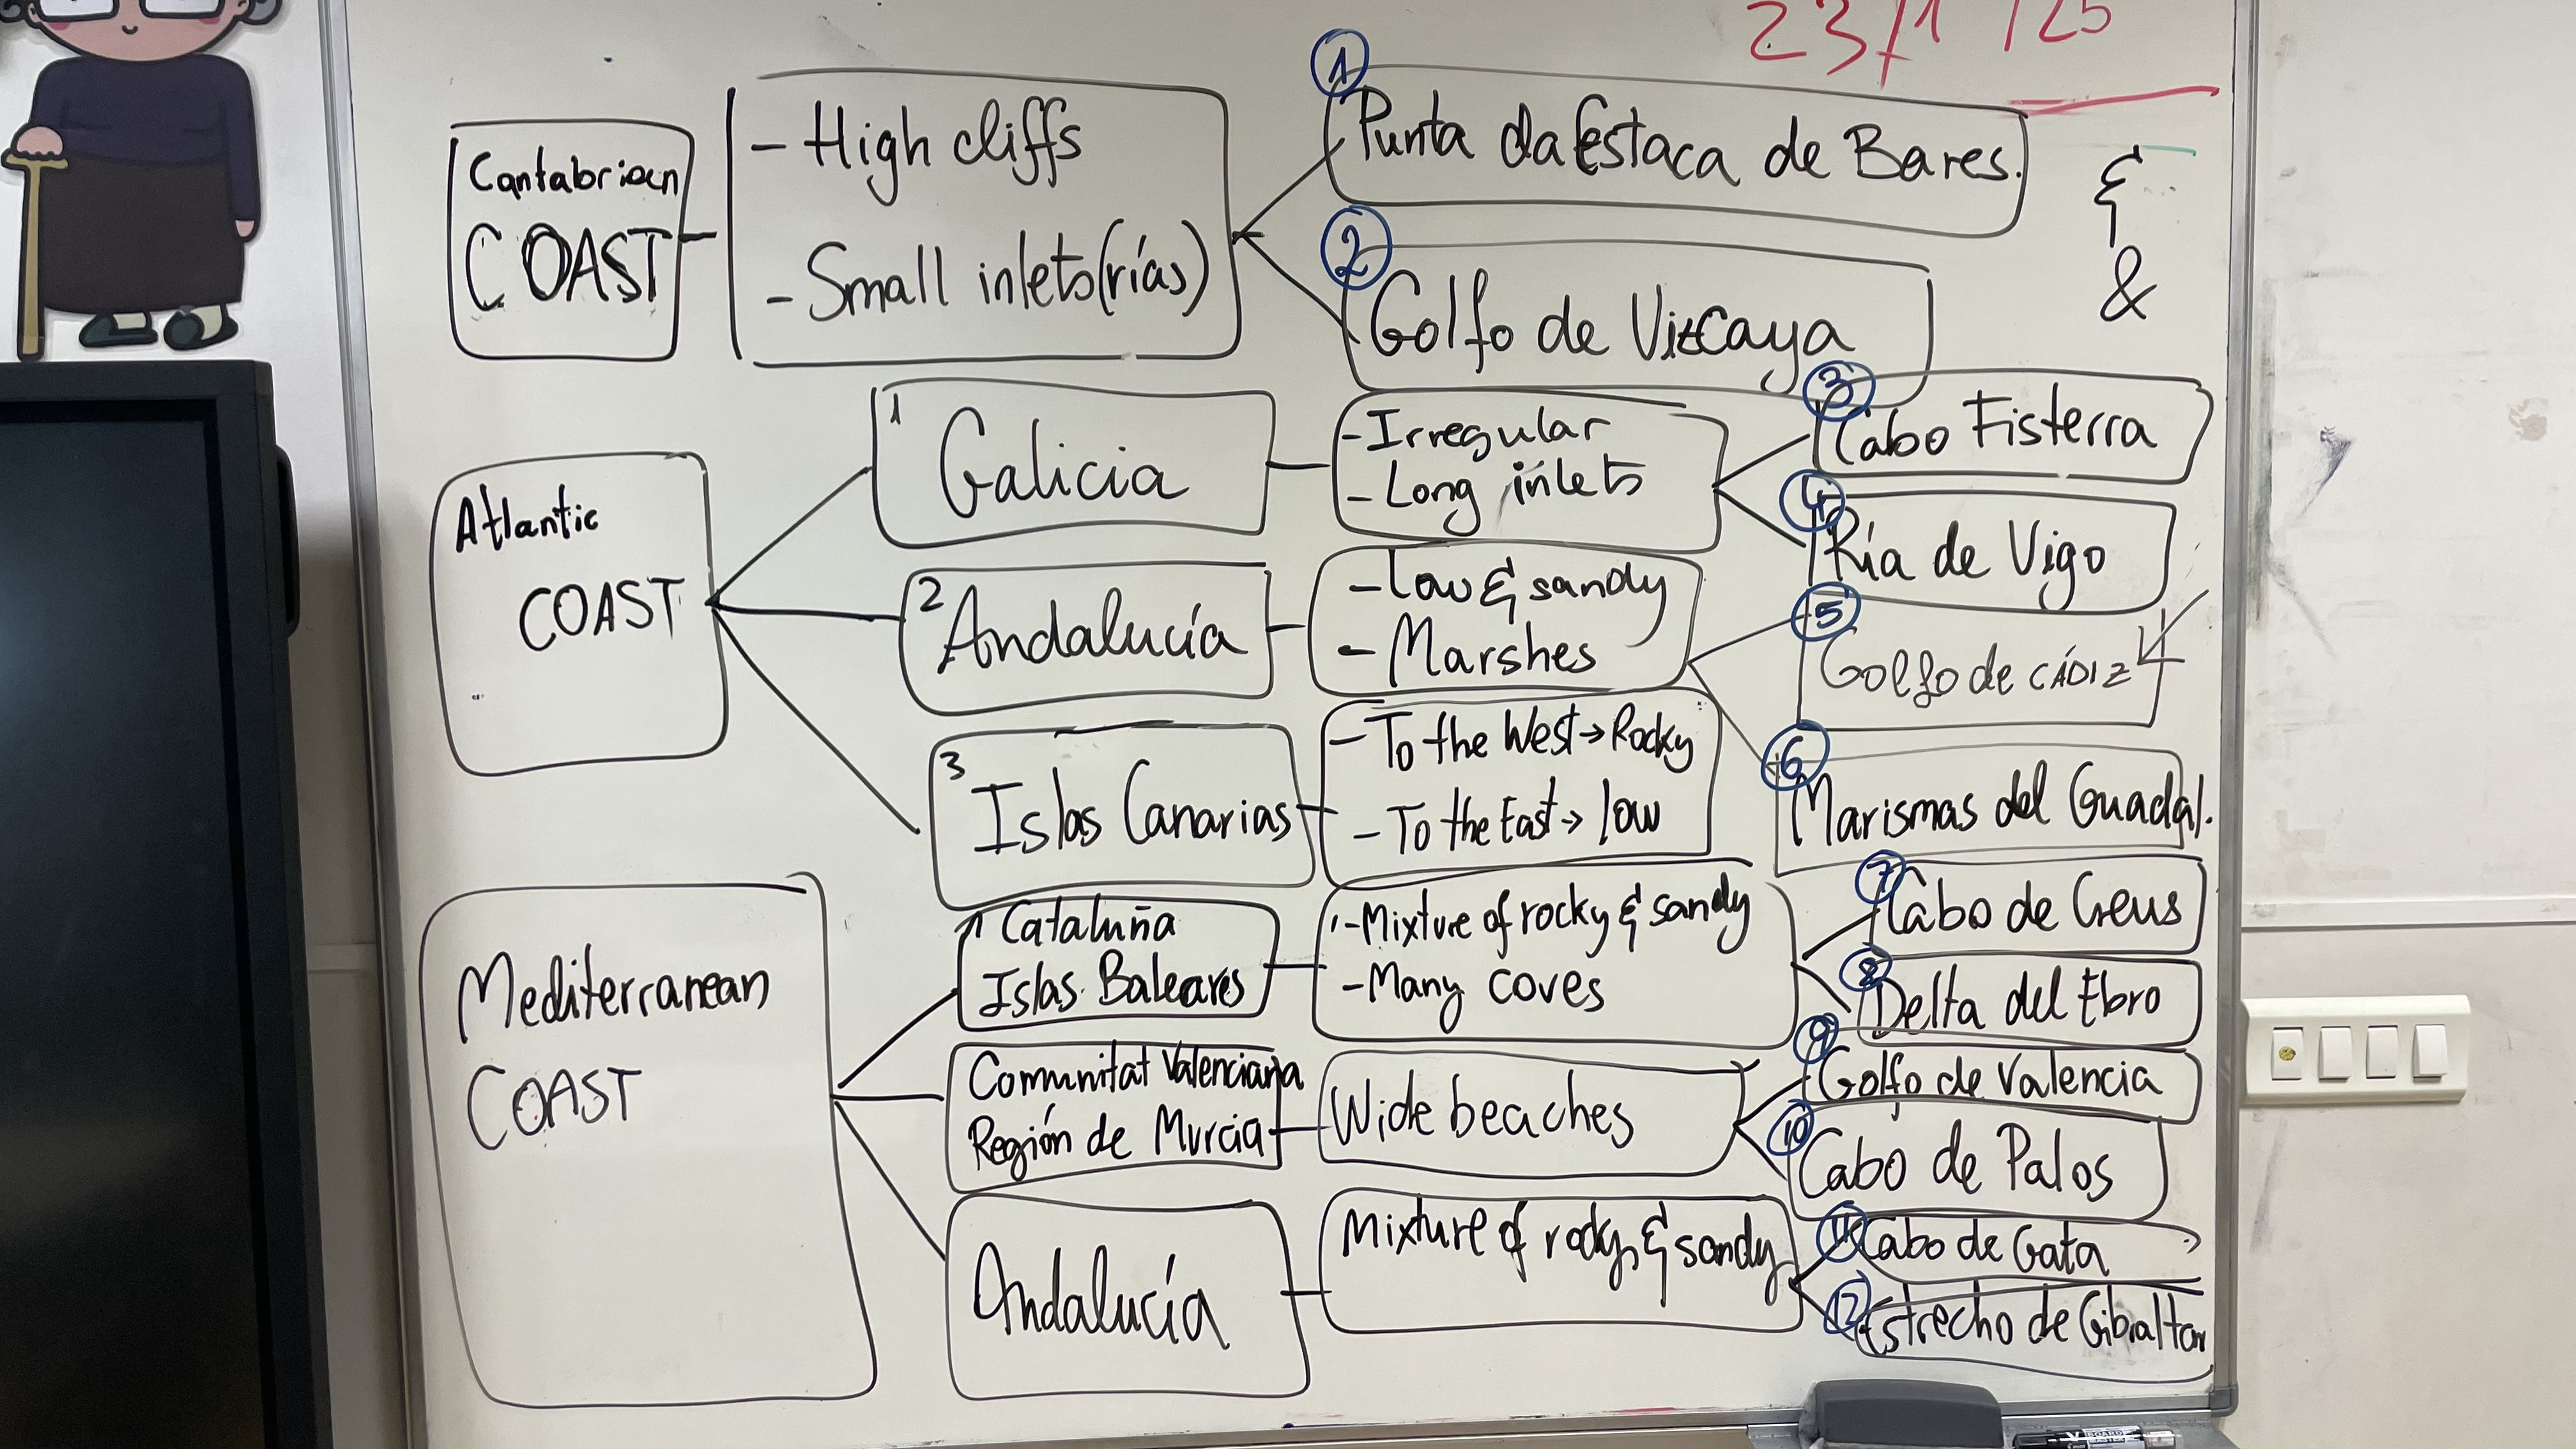 23/1/25
Cantabrian
COAST
- High cliffs
- Small inlets (rías)
1
Punta da Estaca de Bares.
2
Golfo de Vizcaya
&
&
Atlantic
COAST
1
Galicia
- Irregular
- Long inlets
3
Cabo Fisterra
4
Ría de Vigo
2
Andalucía
- Low & sandy
- Marshes
5
Golfo de CÁDIZ
6
Marismas del Guadal.
3
Islas Canarias
- To the West → Rocky
- To the East → low
Mediterranean
COAST
1 Cataluña
Islas Baleares
- Mixture of rocky & sandy
- Many coves
7
Cabo de Creus
8
Delta del Ebro
Comunitat Valenciana
Región de Murcia
Wide beaches
9
Golfo de Valencia
10
Cabo de Palos
Andalucía
Mixture of rocky & sandy
11 Cabo de Gata
12 Estrecho de Gibraltar